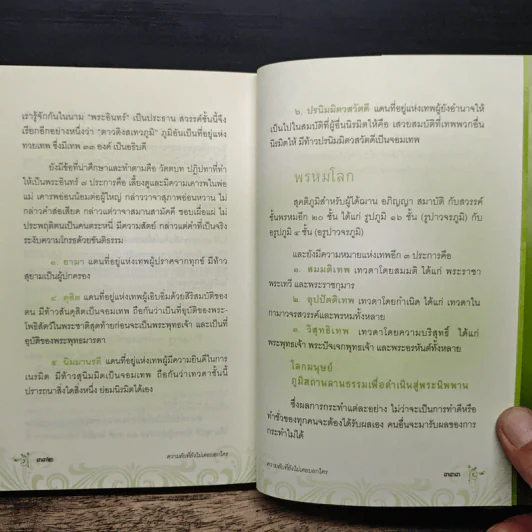 เรารู้จักกันในนาม "พระอินทร์" เป็นประธาน สวรรค์ชั้นนี้จึง
เรียกอีกอย่างหนึ่งว่า "ดาวดึงสเทวภูมิ" ภูมิอันเป็นที่อยู่แห่ง
ทวยเทพ ซึ่งมีเทพ ๓๓ องค์ เป็นอธิบดี
ยังมีข้อที่น่าศึกษาและทำตามคือ วัตตบท ปฏิปทาที่ทำ
ให้เป็นพระอินทร์ ๗ ประการคือ เลี้ยงดูและมีความเคารพในพ่อ
แม่ เคารพอ่อนน้อมต่อผู้ใหญ่ กล่าววาจาสุภาพอ่อนหวาน ไม่
กล่าวคำส่อเสียด กล่าวแต่วาจาสมานสามัคคี ชอบเผื่อแผ่ ไม่
ประพฤติตนเป็นคนตระหนี่ มีความสัตย์ กล่าวแต่คำที่เป็นจริง
ระงับความโกรธด้วยขันติธรรม
๓. ยามา แดนที่อยู่แห่งเทพผู้ปราศจากทุกข์ มีท้าว
สุยามเป็นผู้ปกครอง
๔. ดุสิต แดนที่อยู่แห่งเทพผู้เอิบอิ่มด้วยสิริสมบัติของ
ตน มีท้าวสันดุสิตเป็นจอมเทพ ถือกันว่าเป็นที่อุบัติของพระ-
โพธิสัตว์ในพระชาติสุดท้ายก่อนจะเป็นพระพุทธเจ้า และเป็นที่
อุบัติของพระพุทธมารดา
๕. นิมมานรดี แดนที่อยู่แห่งเทพผู้มีความยินดีในการ
เนรมิต มีท้าวสุนิมมิตเป็นจอมเทพ ถือกันว่าเทวดาชั้นนี้
ปรารถนาสิ่งใดสิ่งหนึ่ง ย่อมนิรมิตได้เอง
๓๓๒
ความลับที่ยังไม่เคยบอกใคร
๖. ปรนิมมิตวสวัตดี แดนที่อยู่แห่งเทพผู้ยังอำนาจให้
เป็นไปในสมบัติที่ผู้อื่นนิรมิตให้คือ เสวยสมบัติที่เทพพวกอื่น
นิรมิตให้ มีท้าวปรนิมมิตวสวัตดีเป็นจอมเทพ
พรหมโลก
สุคติภูมิสำหรับผู้ได้ฌาน อภิญญา สมาบัติ กับสวรรค์
ชั้นพรหมอีก ๒๐ ชั้น ได้แก่ รูปภูมิ ๑๖ ชั้น (รูปาวจรภูมิ) กับ
อรูปภูมิ ๔ ชั้น (อรูปาวจรภูมิ)
และยังมีความหมายแห่งเทพอีก ๓ ประการคือ
๑. สมมติเทพ เทวดาโดยสมมติ ได้แก่ พระราชา
พระเทวี และพระราชกุมาร
๒. อุปปัตติเทพ เทวดาโดยกำเนิด ได้แก่ เทวดาใน
กามาวจรสวรรค์และพรหมทั้งหลาย
๓. วิสุทธิเทพ เทวดาโดยความบริสุทธิ์ ได้แก่
พระพุทธเจ้า พระปัจเจกพุทธเจ้า และพระอรหันต์ทั้งหลาย
โลกมนุษย์
ภูมิสถานลานธรรมเพื่อดำเนินสู่พระนิพพาน
ซึ่งผลการกระทำแต่ละอย่าง ไม่ว่าจะเป็นการทำดีหรือ
ทำชั่วของทุกคนจะต้องได้รับผลเอง คนอื่นจะมารับผลของการ
กระทำไม่ได้
ความลับที่ยังไม่เคยบอกใคร
๓๓๓